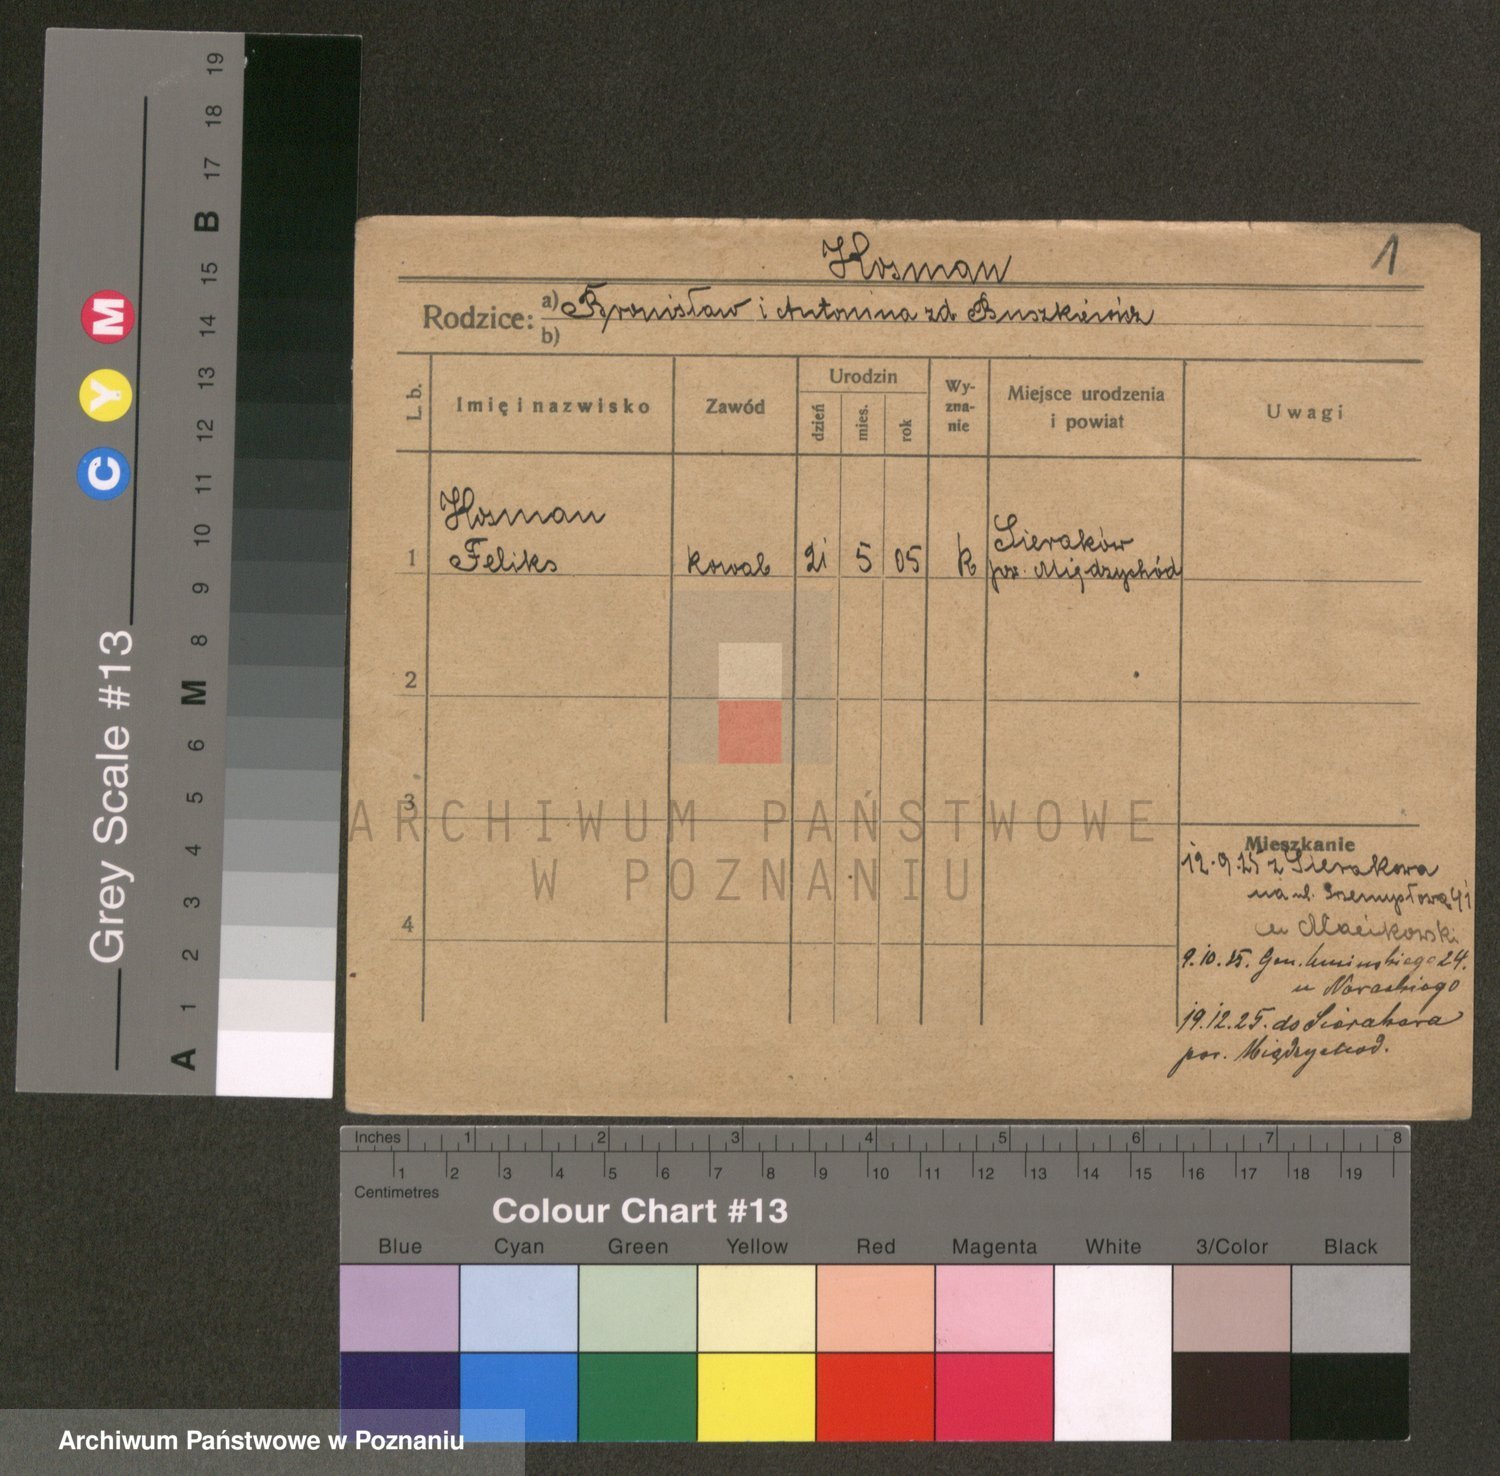 Grey Scale #13
C Y M
A 1 2 3 4 5 6 M 8 9 10 11 12 13 14 15 B 17 18 19
Hosman
1
Rodzice: a) Bronisław i Antonina zd Buszkiewicz
b)
L. b. Imię i nazwisko Zawód Urodzin dzień mies. rok Wy-zna-nie Miejsce urodzenia i powiat Uwagi
Hosman
1 Feliks kowal 21 5 05 k Sieraków
pow. Międzychód
2
3
4
Mieszkanie
12.9.25 z Sierakowa
na ul. Przemysłową 41
u
9.10.25. Gen. Umińskiego 24.
u
19.12.25. do Sierakowa
pow. Międzychod.
ARCHIWUM PAŃSTWOWE
W POZNANIU
Inches 1 2 3 4 5 6 7 8
1 2 3 4 5 6 7 8 9 10 11 12 13 14 15 16 17 18 19
Centimetres
Colour Chart #13
Blue Cyan Green Yellow Red Magenta White 3/Color Black
Archiwum Państwowe w Poznaniu